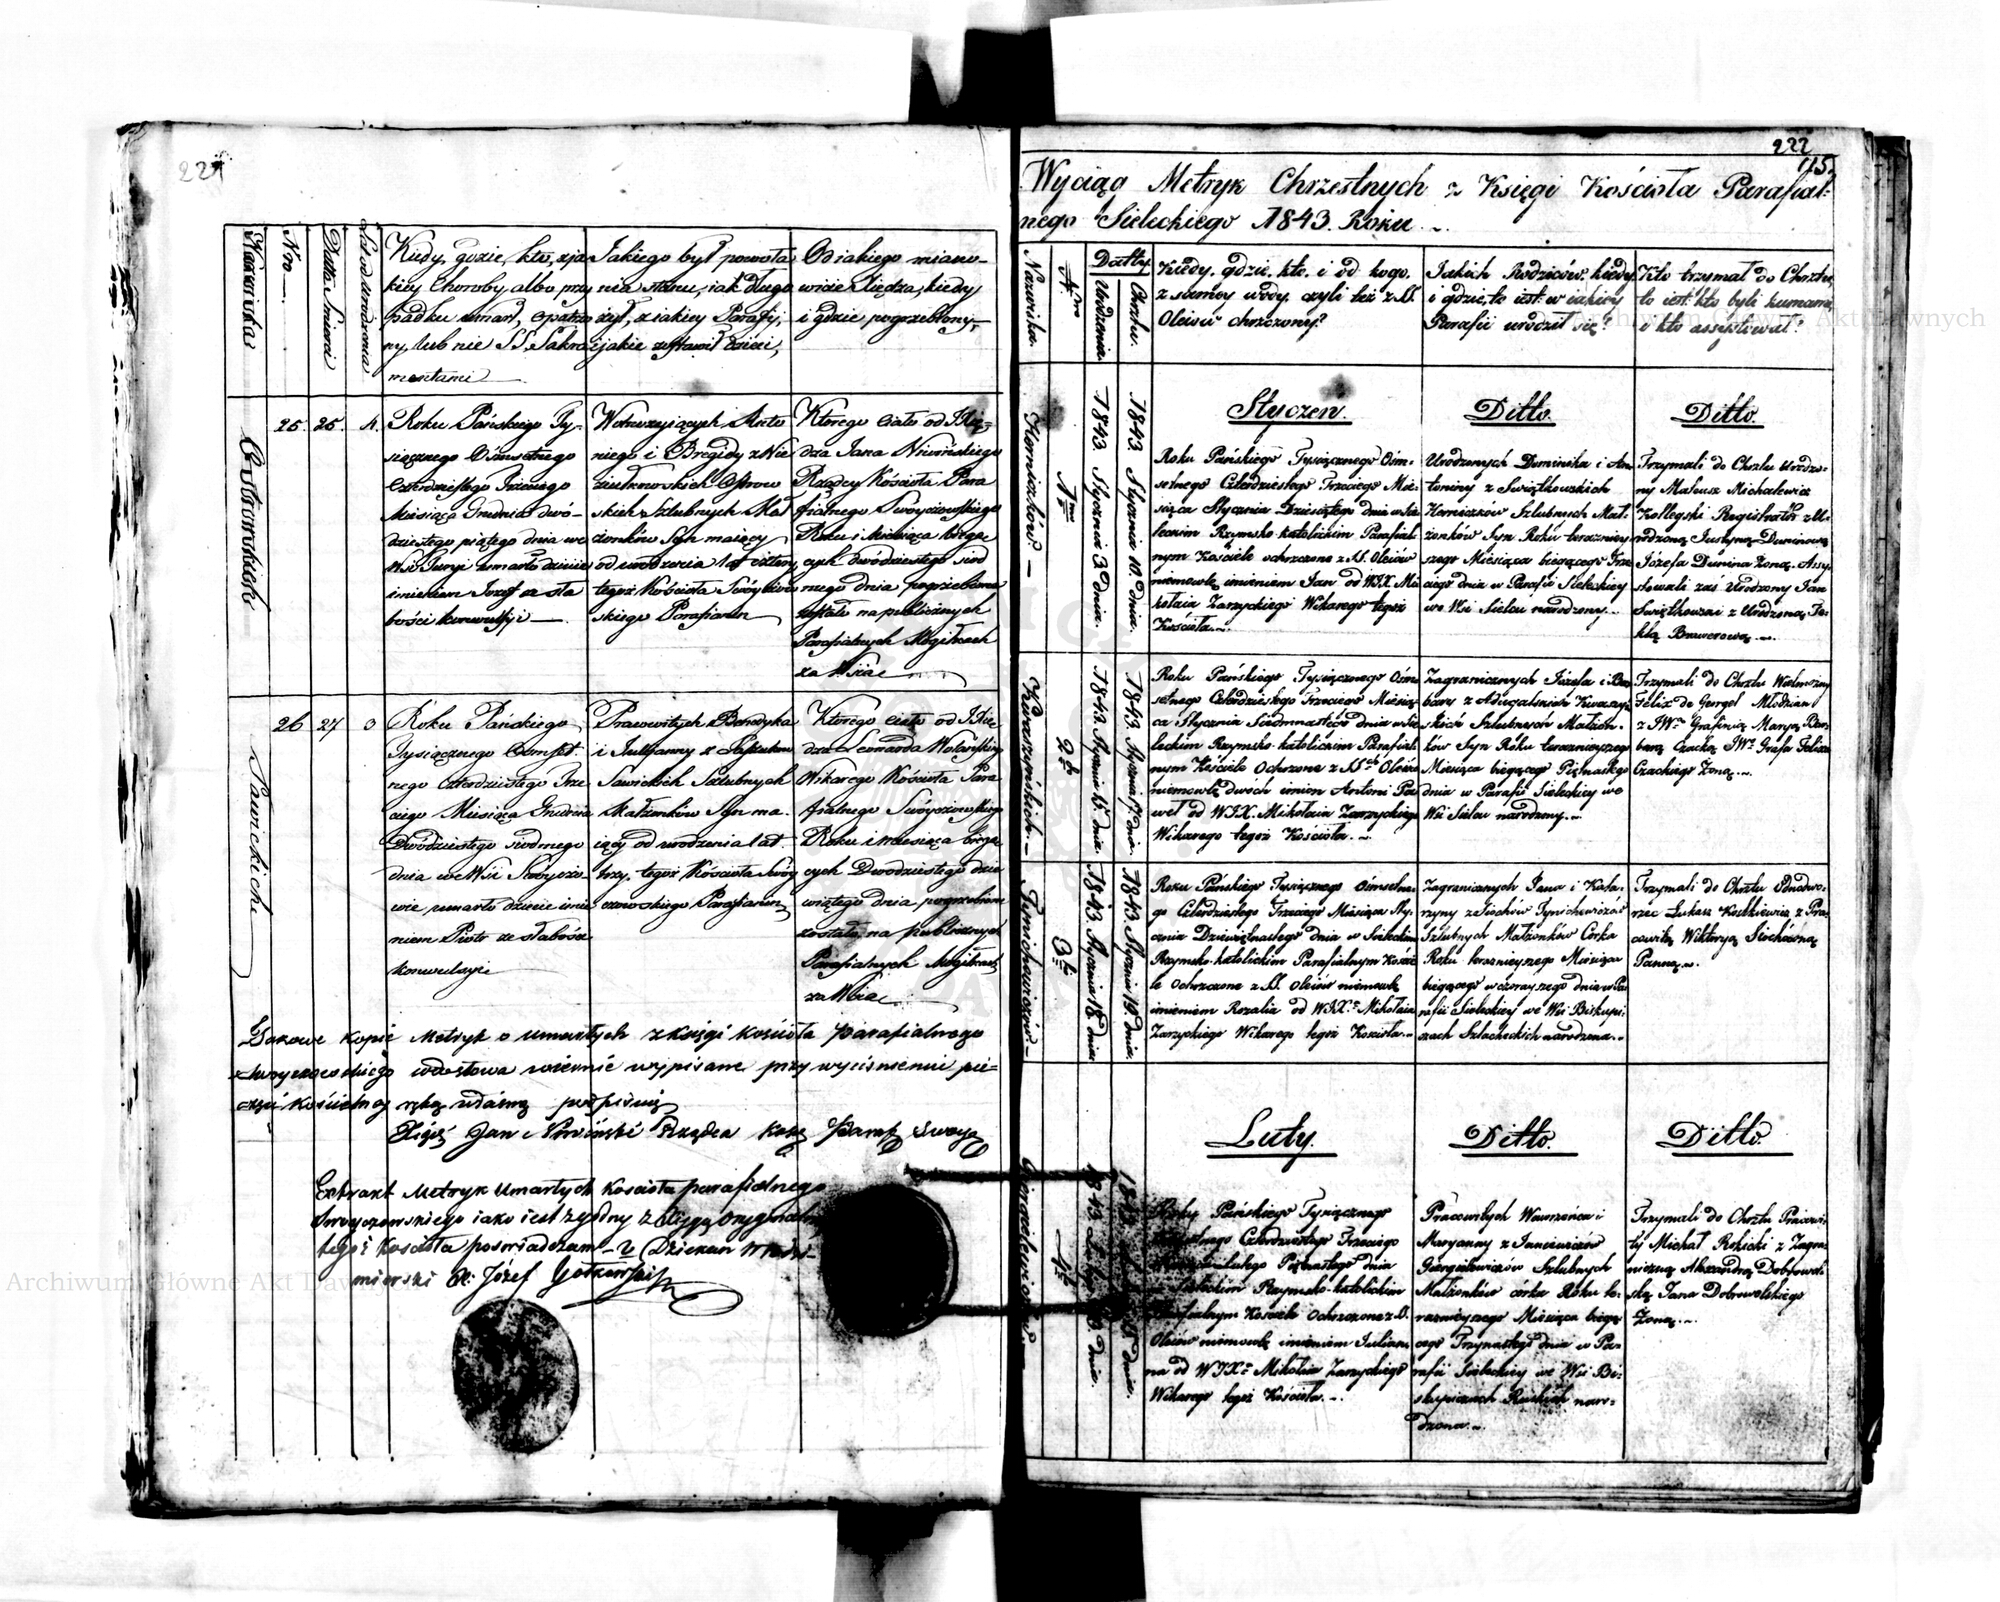 221
Nazwiska
Nro
Datta Śmierci
Lat od urodzenia
Kiedy, gdzie, kto, z ja
kiey Choroby albo przy
padku umarł, opatrzo
ny lub nie SS. Sakra
mentami
Jakiego był powoła
nia stanu, iak długo
żył, z iakiey Parafij,
jakie zostawił dzieci,
Od iakiego miano-
wicie Xiędza, kiedy
i gdzie pogrzebiony
Ostrowskich
25. 25. 4.
Roku Pańskiego Ty-
siącznego Ośmsetnego
Czterdziestego Trzeciego
Miesiąca Grudnia dwó-
dziestego piątego dnia we
Wsi umarło dziecie
imieniem Jozef ze sła
bości konwulsyi
Woterzyiących Anto
niego i Brygidy z Nie
Ostrow
skich Szlubnych Mał
żonków Syn maiący
od urodzenia lat cztery
tegoż Kościoła Swóyczow
skiego Parafianin
Ktorego ciało od JX Xię-
dza Jana Niwińskiego
Rządcy Kościoła Para
fialnego Swóyczowskiego
Roku i Miesiąca bieżą
cych dwódziestego siod
mego dnia pogrzebione
zostało na publicznych
Parafialnych Mogiłkach
za Wsią
Sawickich
26 27 3
Roku Pańskiego
Tysiącznego Ośmset
nego Czterdziestego Trze
ciego Miesiąca Grudnia
Dwódziestego siodmego
dnia we Wsi Swóyczo
wie umarło dziecie imie
niem Piotr ze słabości
konwulsyi
Pracowitych Benedykta
i Julyanny z
Sawickich Szlubnych
Małżonków Syn ma
iący od urodzenia lat
trzy, tegoż Kościoła Swóy
czowskiego Parafianin
Ktorego ciało od JX Xię
dza Leonarda Wolańskiego
Wikarego Kościoła Para
fialnego Swóyczowskiego
Roku i miesiąca bieżą
cych Dwodziestego dzie
wiątego dnia pogrzebione
zostało na publicznych
Parafialnych Mogiłkach
za Wsią
Takowe kopie Metryk o umarłych z księgi kościoła parafialnego
Swoyczowskiego wdostowa wiernie wypisane przy wyciśnieniu pie-
częci kościelney ręką własną podpisuię
Xiądz Jan Niwiński Rządca Kośc. Paraf. Swoyz
Extrakt Metryk Umarłych Kościoła parafialnego
Swoyczowskiego iako iest zgodny z Xięgą Oryginalną
tegoż Kościoła poswiadczam - Dziekan Włodzi-
mierski X. Józef
222
115.
Wyciąg Metryk Chrzestnych z Księgi Kościoła Parafial-
nego Sieleckiego 1843. Roku
Nazwiska.
Nro
Datty
Urodzenia.
Chrztu.
Kiedy, gdzie, kto, i od kogo,
z samey wody, czyli też z SS.
Oleiów chrzczony?
Jakich Rodziców, kiedy
i gdzie, to iest w iakiey
Parafii urodził się?
Kto trzymał do Chrztu,
to iest kto byli kumami,
i kto assystował?
Styczen.
Ditto.
Ditto.
Korniczków.
1mo
1843. Stycznia 3 dnia.
1843. Stycznia 10. dnia.
Roku Pańskiego Tysiącznego Ośm-
setnego Czterdziestego Trzeciego Mie-
siąca Stycznia Dziesiątego dnia w Sie-
leckim Rzymsko-katolickim Parafial-
nym Kościele ochrzczone z SS. Oleiów
niemowlę imieniem Jan od WJX. Mi-
kołaia Zarzyckiego Wikarego tegoż
Kościoła.
Urodzonych Dominika i An-
toniny z Swiątkowskich
Korniczków Szlubnych Mał-
żonków Syn Roku terazniey-
szego Miesiąca bieżącego Trze-
ciego dnia w Parafii Sieleckiey
we Wsi Sielcu narodzony.
Trzymali do Chrztu Urodzo-
ny Mateusz Michalewicz
Kollegski Registrator z U-
rodzoną Justyną Duninową
Józefa Dunina Żoną. Assy-
stowali zaś Urodzony Jan
Swiątkowski z Urodzoną Te-
klą Brawerową.
Kwaszyńskich.
2do
1843. Stycznia 15. dnia.
1843. Stycznia 17. dnia.
Roku Pańskiego Tysiącznego Ośm-
setnego Czterdziestego Trzeciego Miesią-
ca Stycznia Siedmnastego dnia w Sie-
leckim Rzymsko-katolickim Parafial-
nym Kościele Ochrzczone z SSch Oleiów
niemowlę dwoch imion Antoni Pa-
weł od WJX. Mikołaia Zarzyckiego
Wikarego tegoż Kościoła.
Zagranicznych Józefa i Bar-
bary z Kwaszyń-
skich Szlubnych Małżon-
ków Syn Roku teraznieyszego
Miesiąca bieżącego Piętnastego
dnia w Parafii Sieleckiey we
Wsi Sielcu narodzony.
Trzymali do Chrztu Wielmożny
Felix de Gurgel Młodzian
z JWą Grafinią Maryą Bar-
barą Czacką JWo Grafa Felixa
Czackiego Żoną.
Tynichowiczów.
3tio
1843. Stycznia 18. dnia.
1843. Stycznia 19. dnia.
Roku Pańskiego Tysiącznego Ośmsetne-
go Czterdziestego Trzeciego Miesiąca Sty-
cznia Dziewiętnastego dnia w Sieleckim
Rzymsko-katolickim Parafialnym Koscie-
le Ochrzczone z SS. Oleiów niemowlę
imieniem Rozalia od WJXa Mikołaia
Zarzyckiego Wikarego tegoż Kościoła.
Zagranicznych Jana i Kata-
rzyny z Siochów Tynichowiczów
Szlubnych Małżonków Córka
Roku teraznieyszego Miesiąca
bieżącego wczorayszego dnia w Pa-
rafii Sieleckiey we Wsi Biskupi-
czach Szlacheckich narodzona.
Trzymali do Chrztu Odnodwo-
rzec Łukasz Kostkiewicz z Pra-
cowitą Wiktoryą Siochówną
Panną.
Luty.
Ditto.
Ditto.
4to
Roku Pańskiego Tysiącznego
Ośmsetnego Czterdziestego Trzeciego
Miesiąca Lutego Piętnastego dnia
w Sieleckim Rzymsko-katolickim
Parafialnym Kościele Ochrzczone z SS.
Oleiów niemowlę imieniem Julian-
na od WJXa Mikołaia Zarzyckiego
Wikarego tegoż Kościoła.
Pracowitych Wawrzeńca i
Maryanny z Janciewiczów
Szlubnych
Małżonków córka Roku te-
raznieyszego Miesiąca bieżą-
cego Trzynastego dnia w Pa-
rafii Sieleckiey we Wsi Bi-
skupiczach Ruskich naro-
dzona.
Trzymali do Chrztu Pracowi-
ty Michał Rokicki z Zagra-
niczną Alexandrą Dobrowol-
ską Jana Dobrowolskiego
Żoną.
Archiwum Główne Akt Dawnych
Archiwum Główne Akt Dawnych